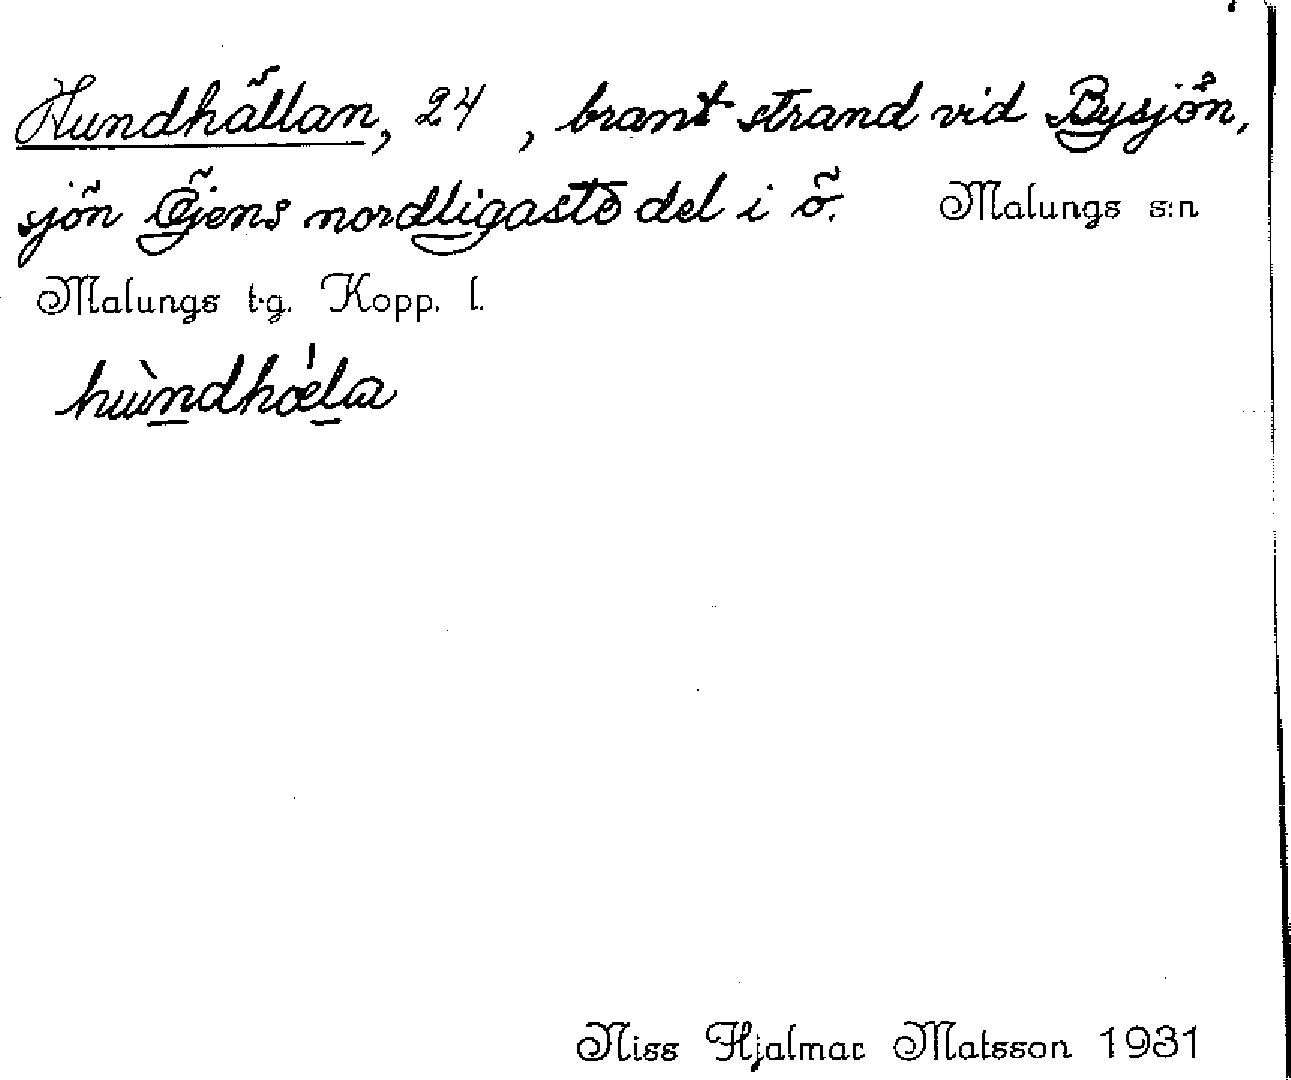 Hundhällan, 24 , brant strand vid Bysjön,
sjön Öjens nordligaste del i ö. Malungs s:n
Malungs t.g. Kopp. l.
hùndhǽla
Niss Hjalmar Matsson 1931